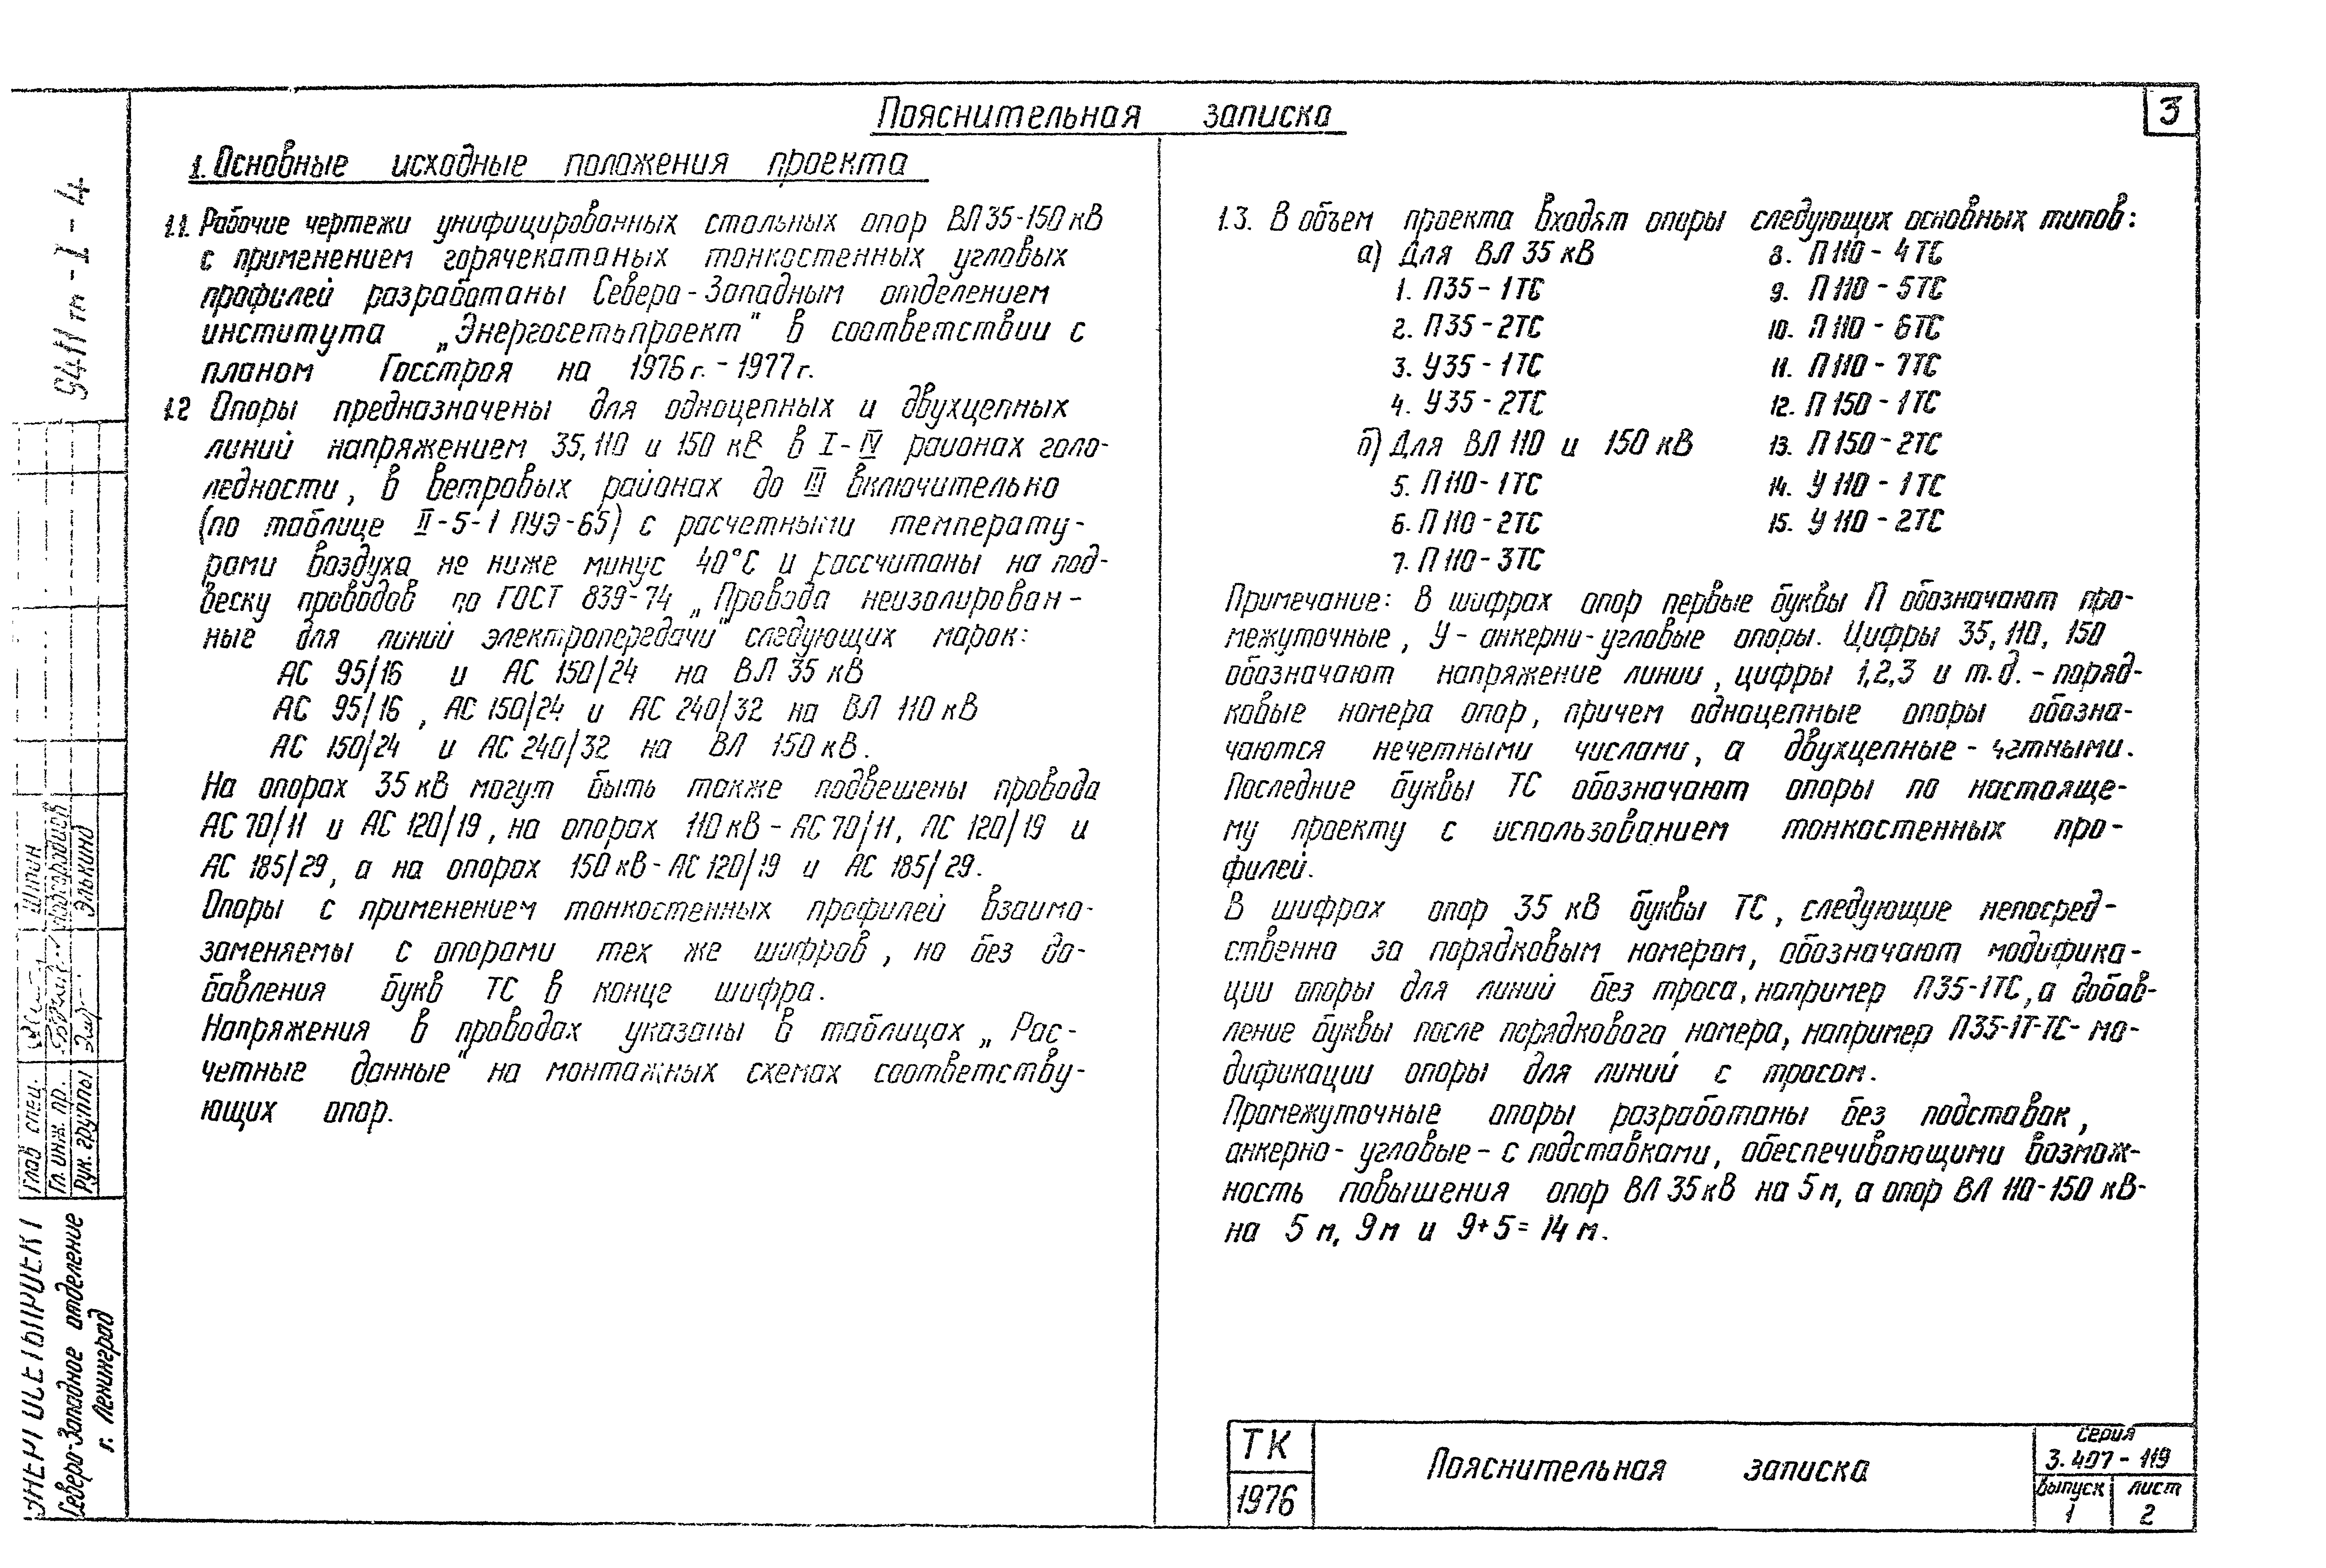 Пояснительная записка
3
1. Основные исходные положения проекта
1.1. Рабочие чертежи унифицированных стальных опор ВЛ 35-150 кВ
с применением горячекатаных тонкостенных угловых
профилей разработаны Северо-Западным отделением
института „Энергосетьпроект" в соответствии с
планом Госстроя на 1976 г. - 1977 г.
1.2 Опоры предназначены для одноцепных и двухцепных
линий напряжением 35, 110 и 150 кВ в I-IV районах голо-
ледности, в ветровых районах до III включительно
(по таблице II-5-1 ПУЭ-65) с расчетными температу-
рами воздуха не ниже минус 40°С и рассчитаны на под-
веску проводов по ГОСТ 839-74 „Провода неизолирован-
ные для линий электропередачи" следующих марок:
АС 95/16 и АС 150/24 на ВЛ 35 кВ
АС 95/16, АС 150/24 и АС 240/32 на ВЛ 110 кВ
АС 150/24 и АС 240/32 на ВЛ 150 кВ.
На опорах 35 кВ могут быть также подвешены провода
АС 70/11 и АС 120/19, на опорах 110 кВ - АС 70/11, АС 120/19 и
АС 185/29, а на опорах 150 кВ - АС 120/19 и АС 185/29.
Опоры с применением тонкостенных профилей взаимо-
заменяемы с опорами тех же шифров, но без до-
бавления букв ТС в конце шифра.
Напряжения в проводах указаны в таблицах „Рас-
четные данные" на монтажных схемах соответству-
ющих опор.
1.3. В объем проекта входят опоры следующих основных типов:
а) Для ВЛ 35 кВ
1. П35-1ТС
2. П35-2ТС
3. У35-1ТС
4. У35-2ТС
б) Для ВЛ 110 и 150 кВ
5. П110-1ТС
6. П110-2ТС
7. П110-3ТС
8. П110-4ТС
9. П110-5ТС
10. П110-6ТС
11. П110-7ТС
12. П150-1ТС
13. П150-2ТС
14. У110-1ТС
15. У110-2ТС
Примечание: В шифрах опор первые буквы П обозначают про-
межуточные, У - анкерно-угловые опоры. Цифры 35, 110, 150
обозначают напряжение линии, цифры 1,2,3 и т.д. - поряд-
ковые номера опор, причем одноцепные опоры обозна-
чаются нечетными числами, а двухцепные - четными.
Последние буквы ТС обозначают опоры по настояще-
му проекту с использованием тонкостенных про-
филей.
В шифрах опор 35 кВ буквы ТС, следующие непосред-
ственно за порядковым номером, обозначают модифика-
ции опоры для линий без троса, например П35-1ТС, а добав-
ление буквы после порядкового номера, например П35-1Т-ТС - мо-
дификации опоры для линий с тросом.
Промежуточные опоры разработаны без подставок,
анкерно-угловые - с подставками, обеспечивающими возмож-
ность повышения опор ВЛ 35 кВ на 5 м, а опор ВЛ 110-150 кВ-
на 5 м, 9 м и 9+5=14 м.
ТК
1976
Пояснительная записка
Серия
3.407-119
Выпуск
1
лист
2
9411 тм-I-4
Глав спец. Штин
Гл. инж. пр.
Рук. группы Элькинд
ЭНЕРГОСЕТЬПРОЕКТ
Северо-Западное отделение
г. Ленинград